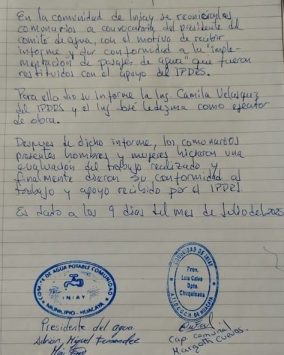 En la comunidad de Iñay se reunieron los
comunarios a convocatoria del presidente del
comite de agua, con el motivo de recibir
informe y dar conformidad a la "imple-
mentación de pasajes de agua" que fueron
restituidos con el apoyo del IPDRS.
Para ello dio su informe la Ing. Camila Velasquez
del IPDRS y el Ing. José Ledezma como ejecutor
de obra.
Despues de dicho informe, los comunarios
presentes hombres y mujeres hicieron una
evaluación del trabajo realizado y
finalmente dieron su conformidad al
trabajo y apoyo recibido por el IPDRS.
Es dado a los 9 días del mes de Julio del 2025
COMITE DE AGUA POTABLE COMUNIDAD
IÑAY
MUNICIPIO - HUACAYA
Prov.
Luis Calvo
Dpto.
Chuquisaca
Presidente del agua
Adrian Miguel Fernandez
Cap comunal
Margoth Cuevas.